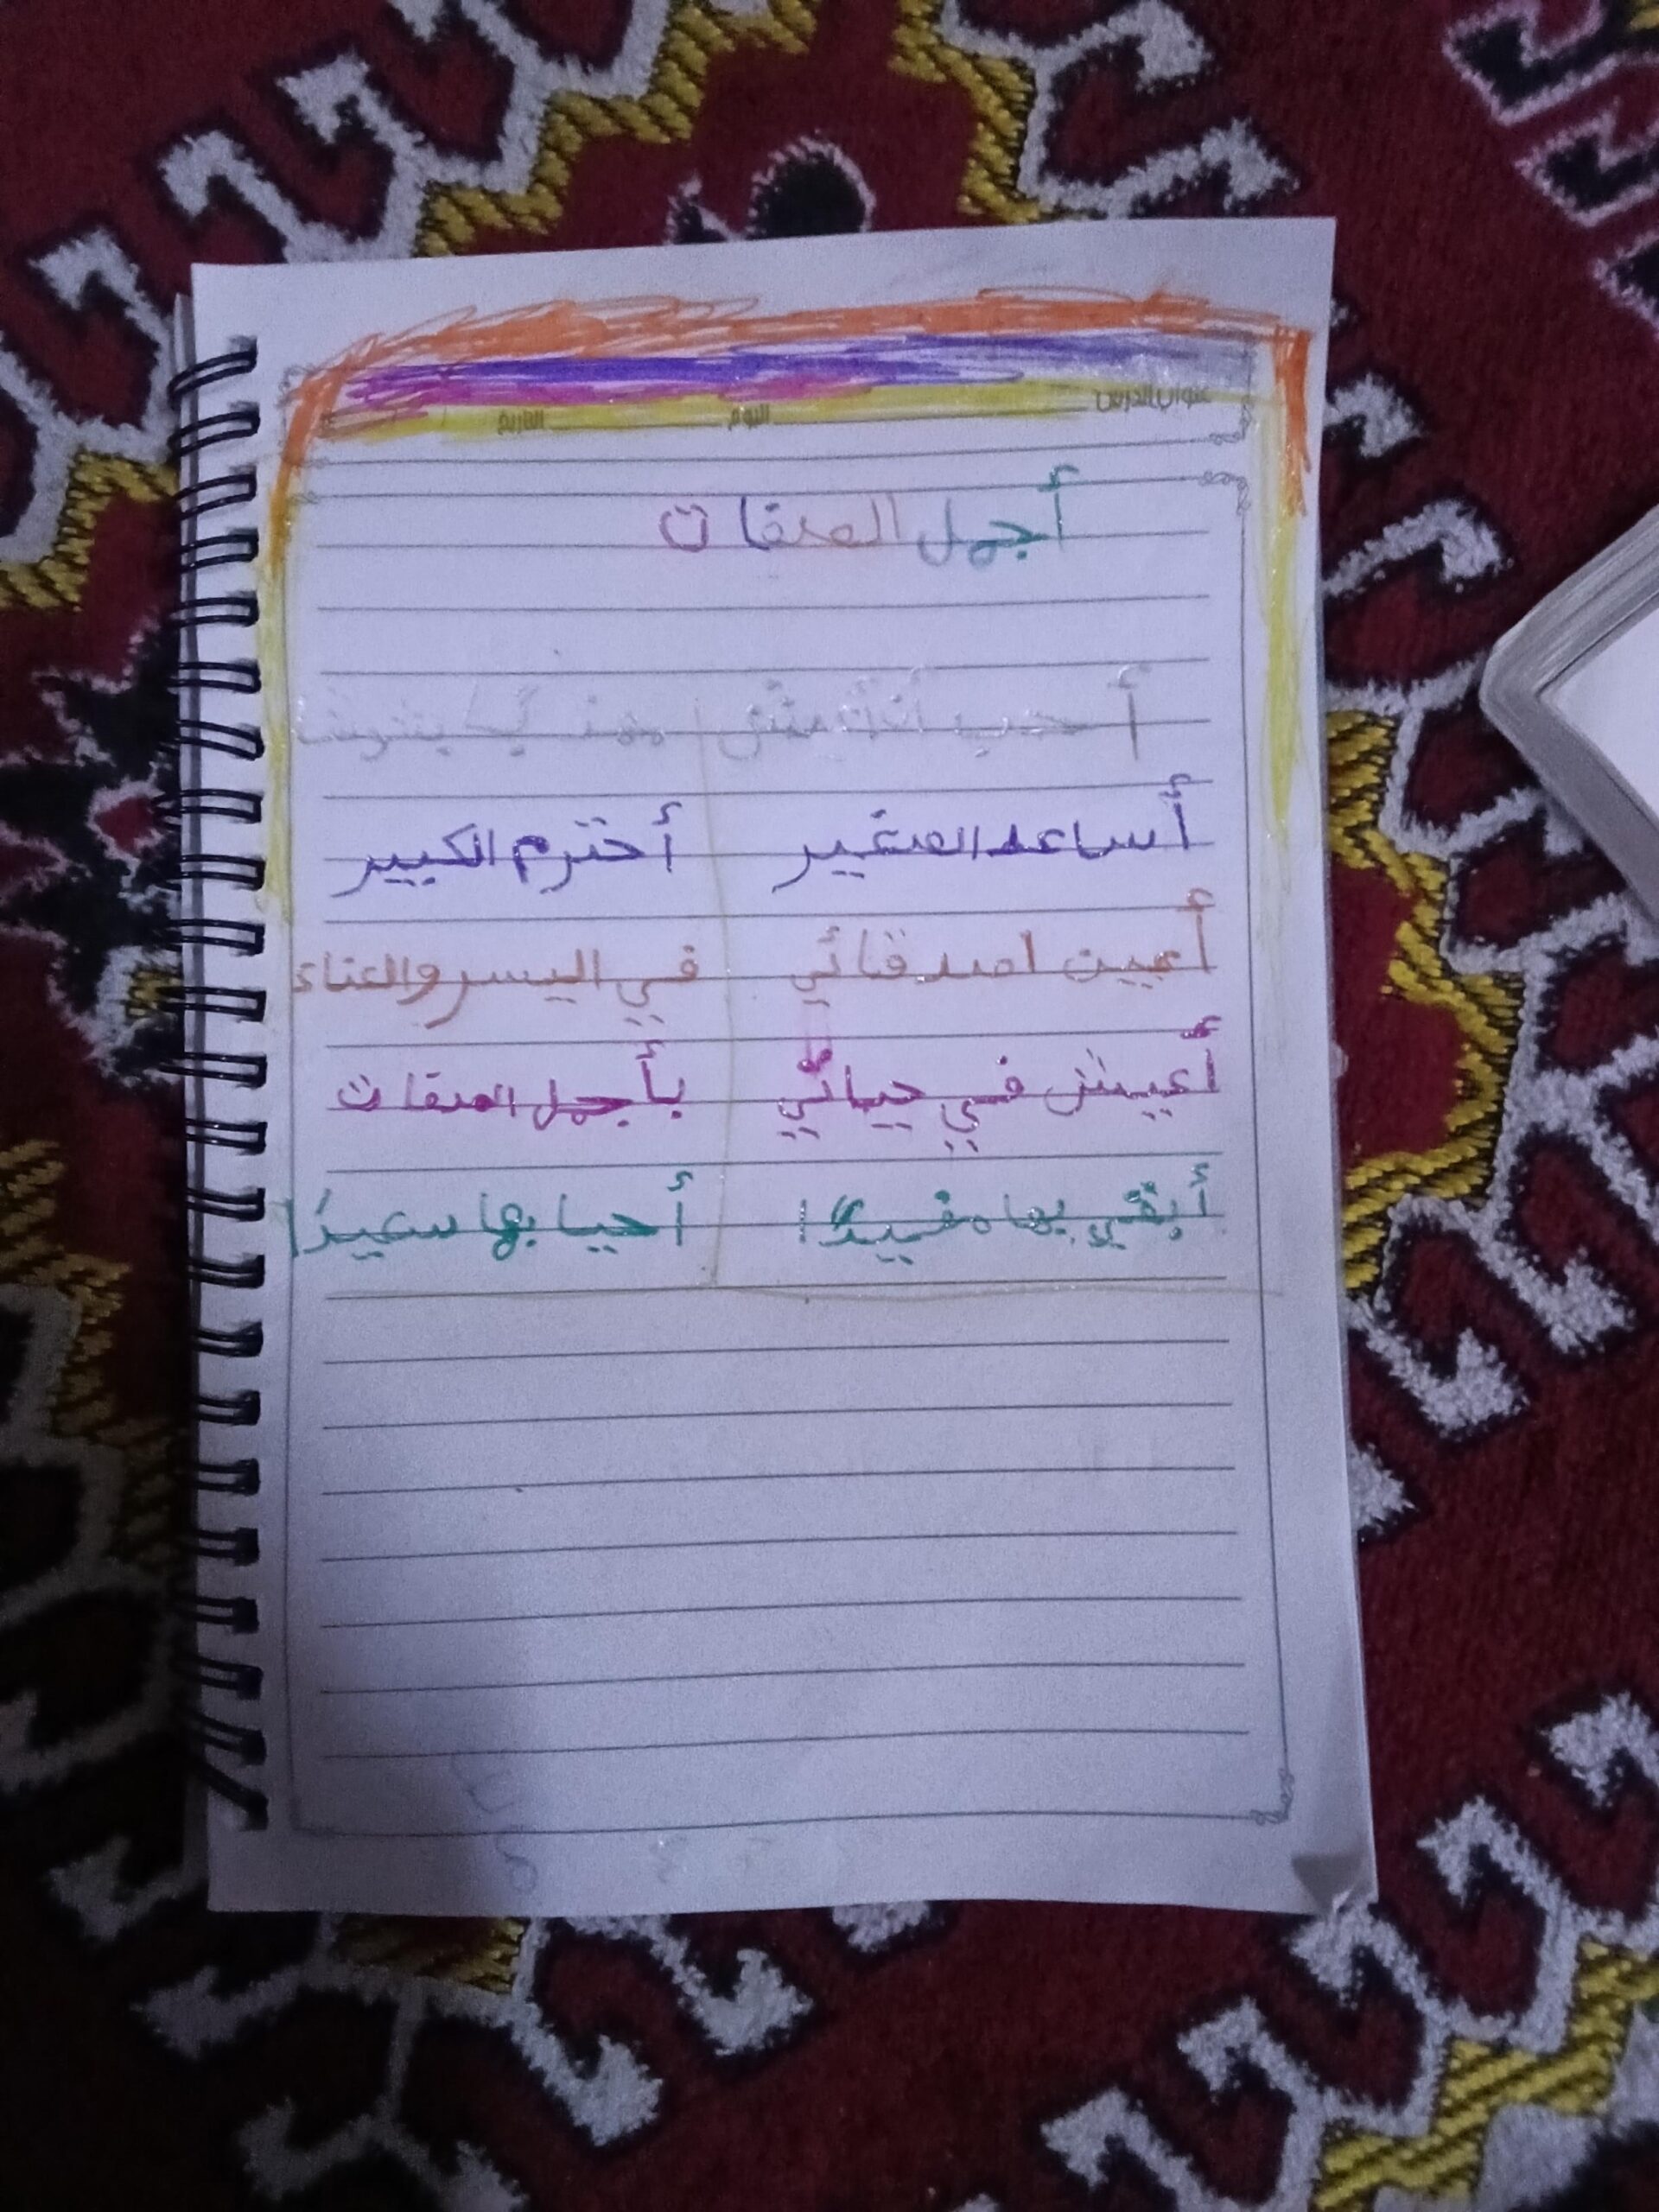 عنوان الدرس اليوم التاريخ
أجمل الصدقات
أحب أن
أساعد الصغير أحترم الكبير
أعين اصدقائي في اليسر والعناء
أعيش في حياتي بأجمل الصدقات
أبقي بها مفيدًا أحيا بها سعيدًا